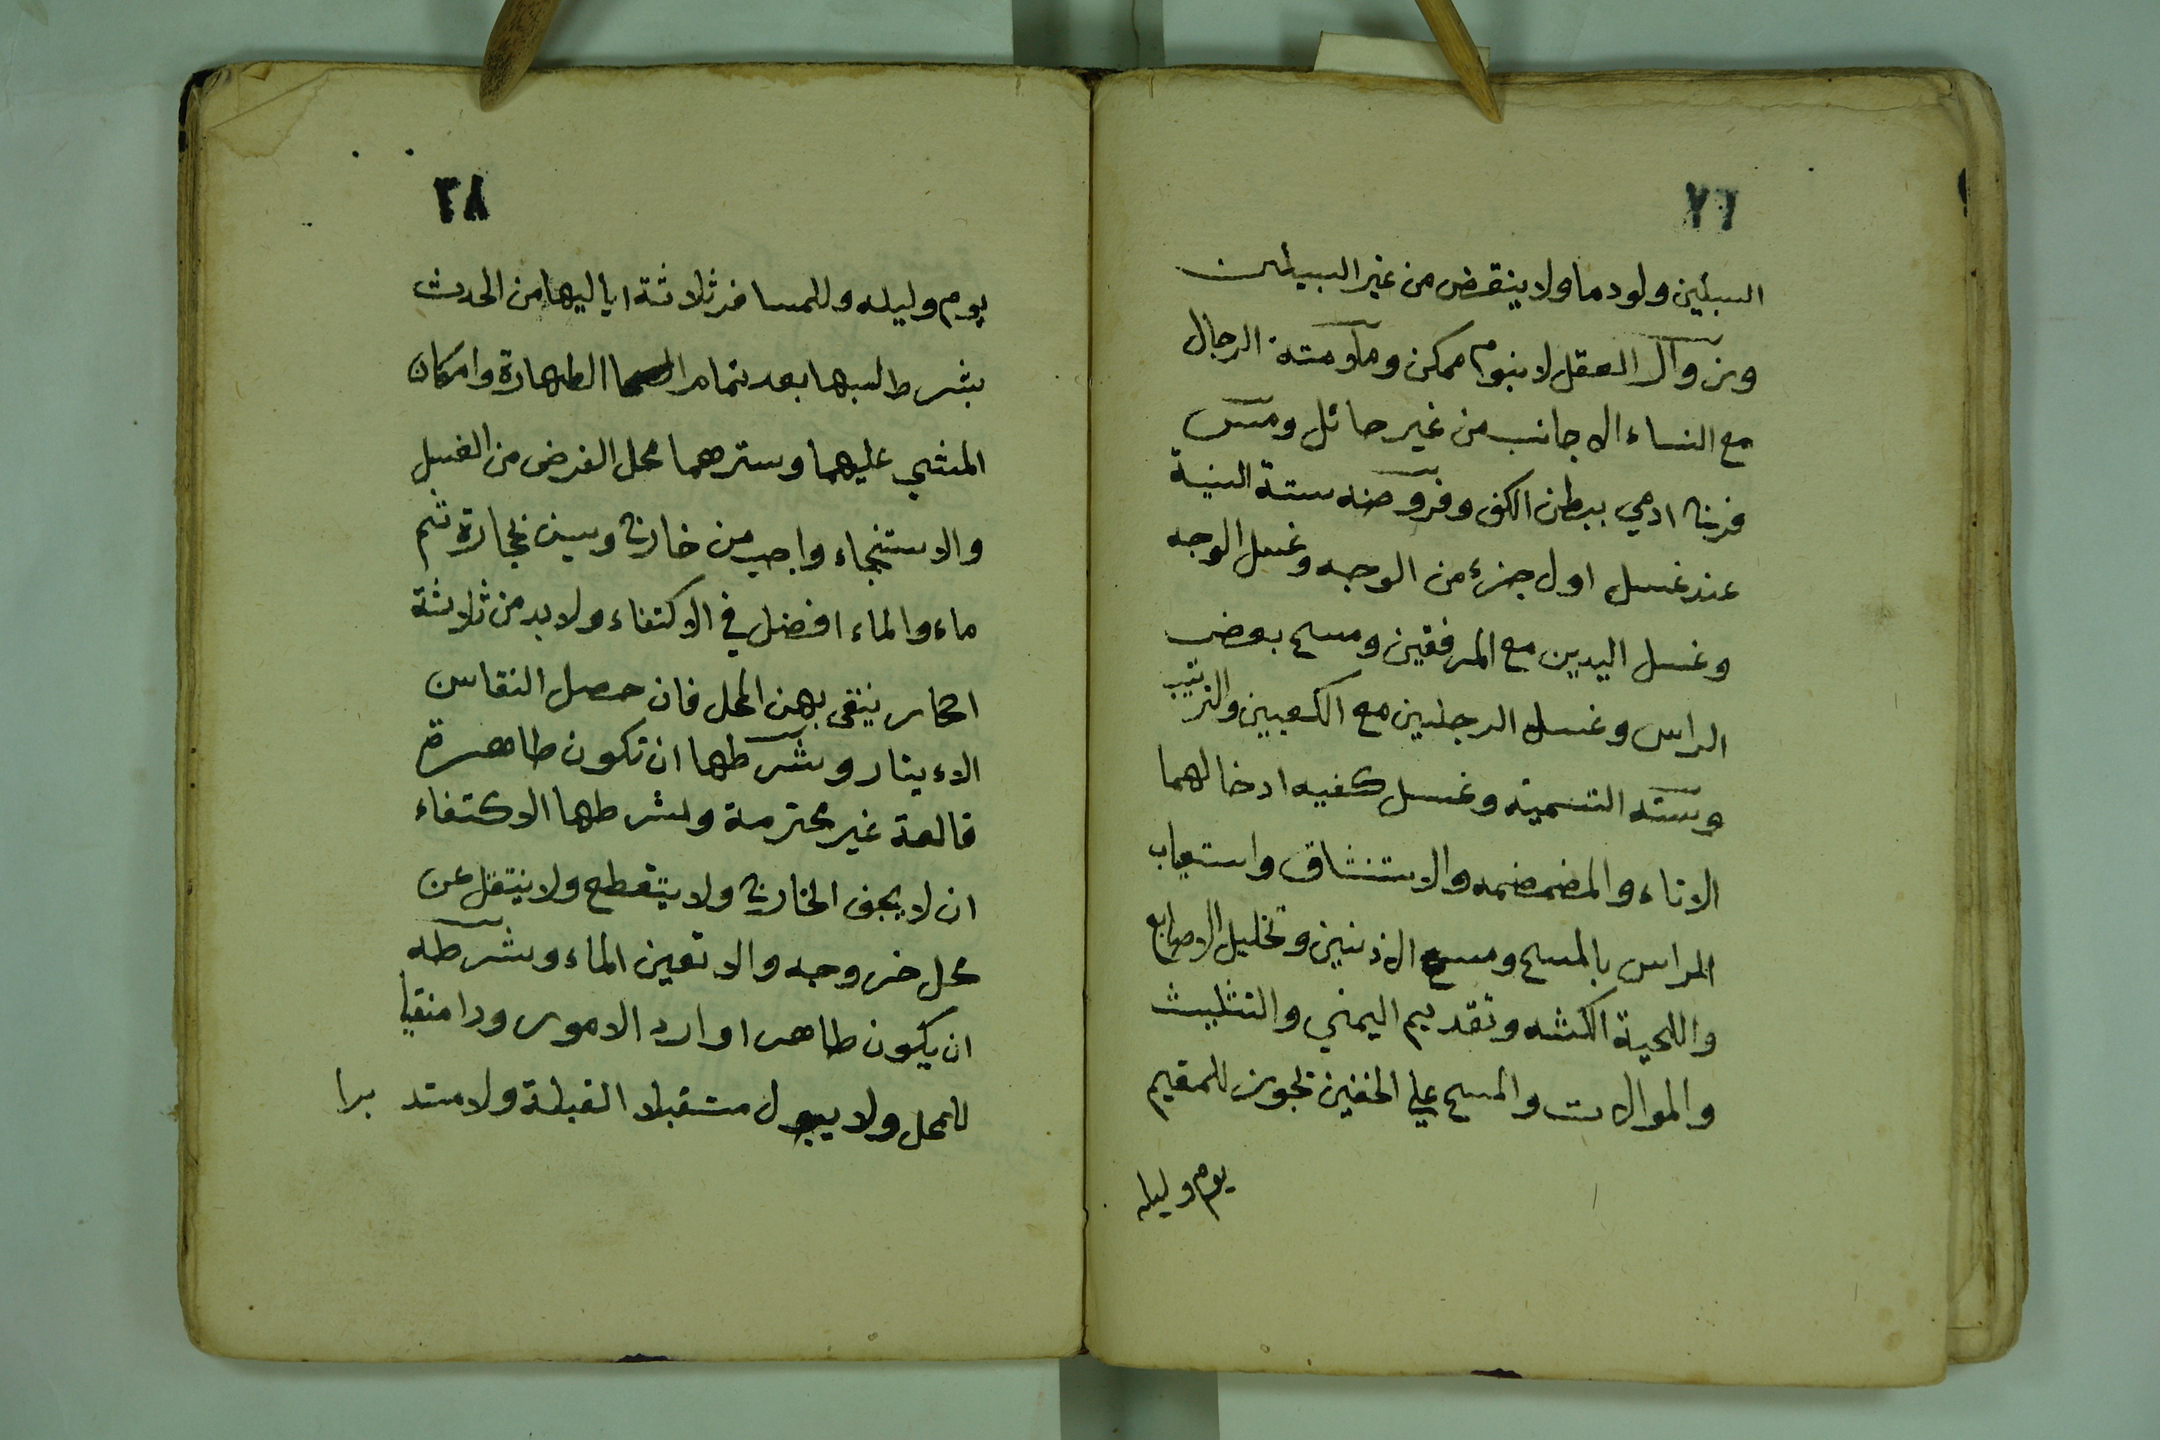 ٢٦
السبلين ولو دما ولا ينقض من غير السبيلين
وبزوال العقل لا بنوم ممكن وملامسته الرجال
مع النساء الاجانب من غير حائل ومس
فرج ادمي ببطن الكف وفروضه ستة النية
عند غسل اول جزء من الوجه وغسل الوجه
وغسل اليدين مع المرفقين ومسح بعض
الراس وغسل الرجلين مع الكعبين والترتيب
وسننه التسمية وغسل كفيه ادخالهما
الاناء والمضمضه والاستنشاق واستيعاب
الراس بالمسح ومسح الاذنين وتخليل الاصابع
واللحية الكثه وتقديم اليمني والتثليث
والموالات والمسح علي الخفين يجوز للمقيم
يوم وليله
٢٨
يوم وليله وللمسافر ثلاثة ايا ليها من الحدث
بشرط لبسها بعد تمام الطهارة وامكان
المشي عليهما وسترهما محل الفرض من الغسل
والاستنجاء واجب من خارج وسن بحجارة ثم
ماء والماء افضل في الاكتفاء ولا بد من ثلاثة
احجار ينقي بهن المحل فان حصل النقا سن
الاءيتار وشرطها ان تكون طاهرة
قالعة غير محترمة ولشرطها الاكتفاء
ان لا يجف الخارج ولا يتقطع ولا ينتقل عن
محل خروجه والا تعين الماء وشرطه
ان يكون طاهرا وارد الامور ودا منقيا
للمحل ولا يبول مستقبلا القبلة ولا مستد برا